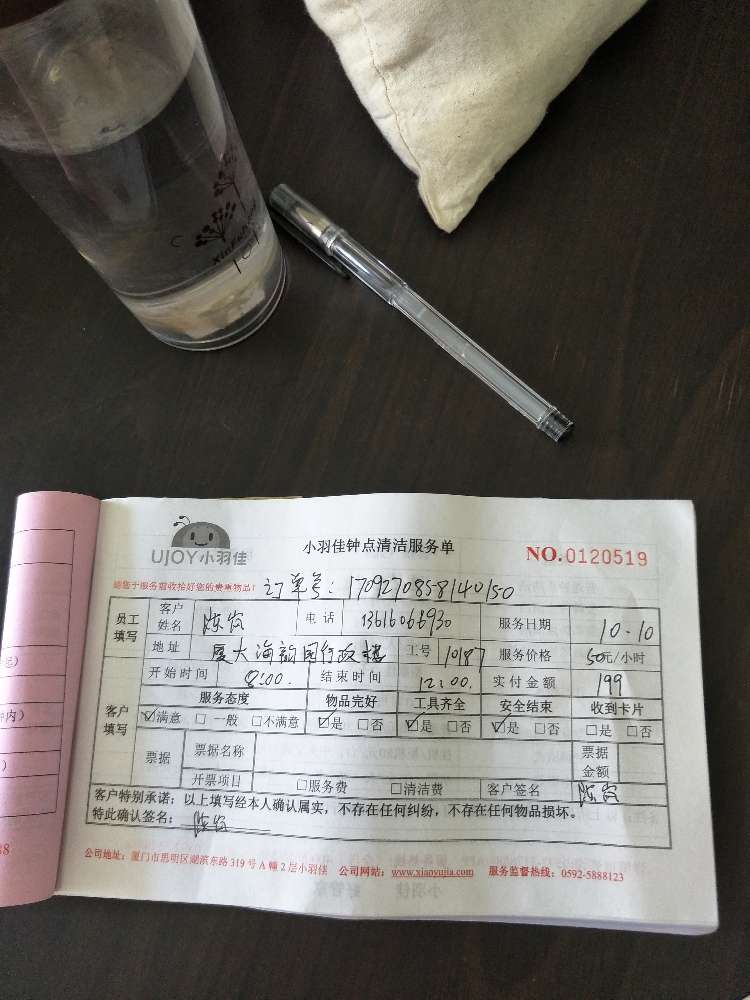 UJOY小羽佳
小羽佳钟点清洁服务单
NO.0120519
订单号：1709270858140150
员工填写 客户姓名 电话 13616066930 服务日期 10.10
地址 厦大海韵园行政楼 工号 10187 服务价格 50元/小时
客户填写 开始时间 8:00. 结束时间 12:00. 实付金额 199
服务态度 物品完好 工具齐全 安全结束 收到卡片
☑满意 □一般 □不满意 ☑是 □否 ☑是 □否 ☑是 □否 □是 □否
票据 票据名称 票据金额
开票项目 □服务费 □清洁费 客户签名
客户特别承诺：以上填写经本人确认属实，不存在任何纠纷，不存在任何物品损坏。
特此确认签名：
公司地址：厦门市思明区湖滨东路319号A幢2层小羽佳 公司网站：www.xiaoyujia.com 服务监督热线：0592-5888123